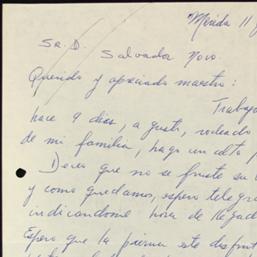 Mérida 11
Sr. D.
Salvador Novo.
Querido y apreciado maestro:
Trabajo
hace 9 días, a gusto, rodeado
de mi familia, hago un alto p
Deseo que no se fruste su
y como quedamos, espero telegra
indicandome hora de llegad
Espero que la pierna este disfrut